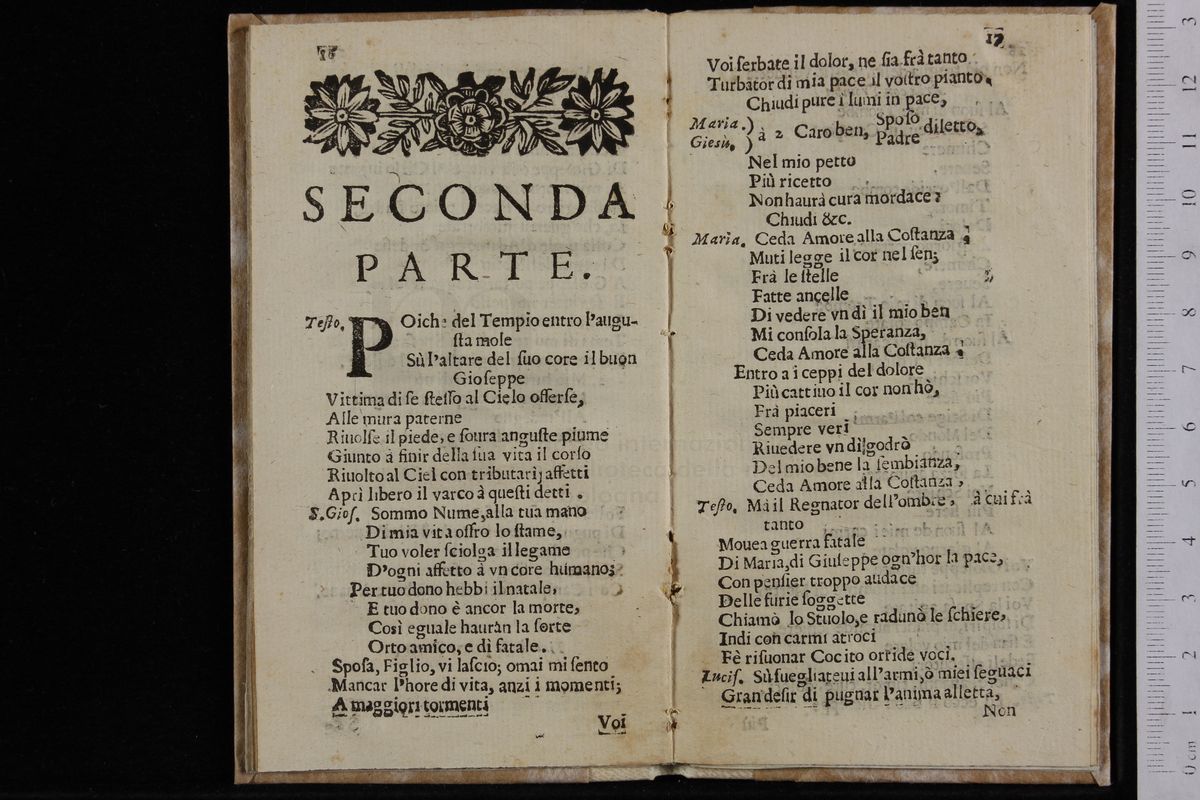 16
SECONDA
PARTE.
Testo. POiche del Tempio entro l'augu-
sta mole
Sù l'altare del suo core il buon
Gioseppe
Vittima di se stesso al Cielo offerse,
Alle mura paterne
Riuolse il piede, e soura anguste piume
Giunto à finir della sua vita il corso
Riuolto al Ciel con tributarij affetti
Aprì libero il varco à questi detti.
S. Gios. Sommo Nume, alla tua mano
Di mia vita offro lo stame,
Tuo voler sciolga il legame
D'ogni affetto à vn core humano;
Per tuo dono hebbi il natale,
E tuo dono è ancor la morte,
Così eguale hauràn la sorte
Orto amico, e dì fatale.
Sposa, Figlio, vi lascio; omai mi sento
Mancar l'hore di vita, anzi i momenti;
A maggiori tormenti
Voi
17
Voi serbate il dolor, ne sia frà tanto
Turbator di mia pace il vostro pianto.
Chiudi pure i lumi in pace,
Maria. ) à 2 Caro ben, Sposo diletto,
Giesù. ) Padre
Nel mio petto
Più ricetto
Non haurà cura mordace:
Chiudi &c.
Maria. Ceda Amore alla Costanza;
Muti legge il cor nel sen;
Frà le stelle
Fatte ancelle
Di vedere vn dì il mio ben
Mi consola la Speranza,
Ceda Amore alla Costanza;
Entro a i ceppi del dolore
Più cattiuo il cor non hò,
Frà piaceri
Sempre veri
Riuedere vn dì godrò
Del mio bene la sembianza,
Ceda Amore alla Costanza,
Testo. Mà il Regnator dell'ombre, à cui frà
tanto
Mouea guerra fatale
Di Maria, di Giuseppe ogn'hor la pace,
Con pensier troppo audace
Delle furie soggette
Chiamò lo Stuolo, e radunò le schiere,
Indi con carmi atroci
Fè risuonar Cocito orride voci.
Lucif. Sù suegliateui all'armi, ò miei seguaci
Gran desir di pugnar l'anima alletta,
Non
0 cm 1 2 3 4 5 6 7 8 9 10 11 12 13